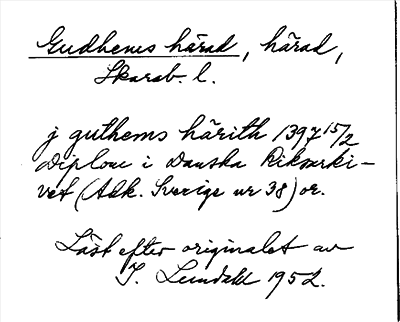 Gudhems härad, härad,
Skarab. l.
j guthems härith 1397 15/2
Diplom i Danska Riksarki-
vet (Adk. Sverige nr 38) or.
Läst efter originalet av
I. Lundahl 1952.